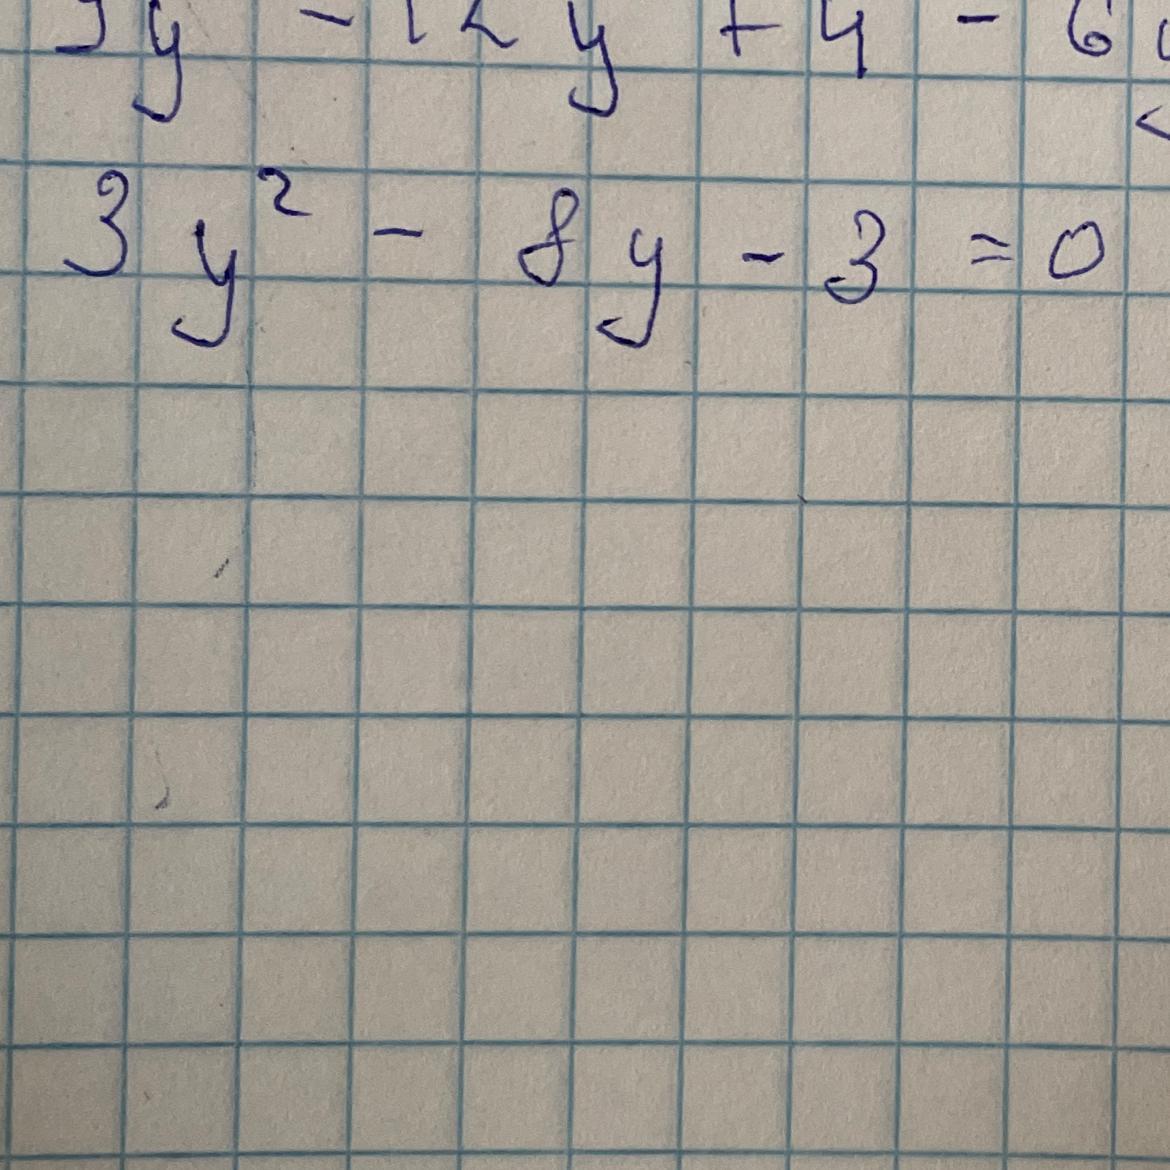 y - 12y + 4 - 6
3y² - 8y - 3 = 0